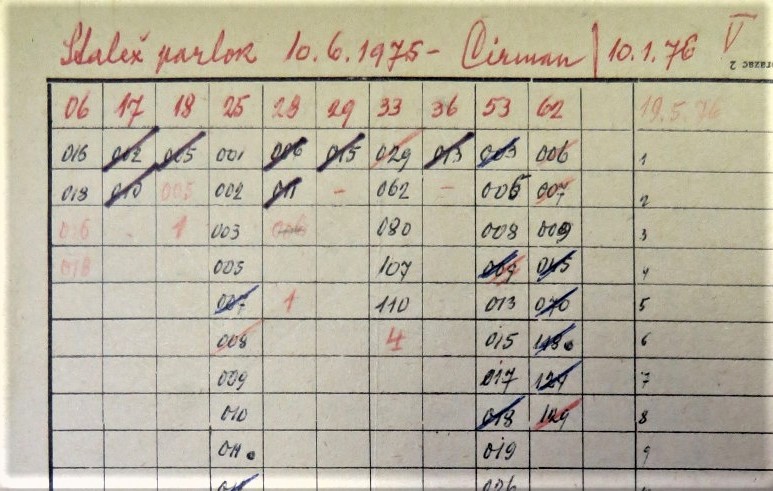 Stalež parlok 10.6.1975- Čirman | 10.1.76 V
razac 2
06 17 18 25 28 29 33 36 53 62 19.5.76
016 002 005 001 006 015 029 013 003 006 1
018 010 005 002 011 - 062 - 006 007 2
016 1 003 006 080 008 009 3
018 005 107 009 045 4
007 1 110 013 070 5
008 4 015 118. 6
009 017 127 7
010 018 129 8
011. 019 9
026